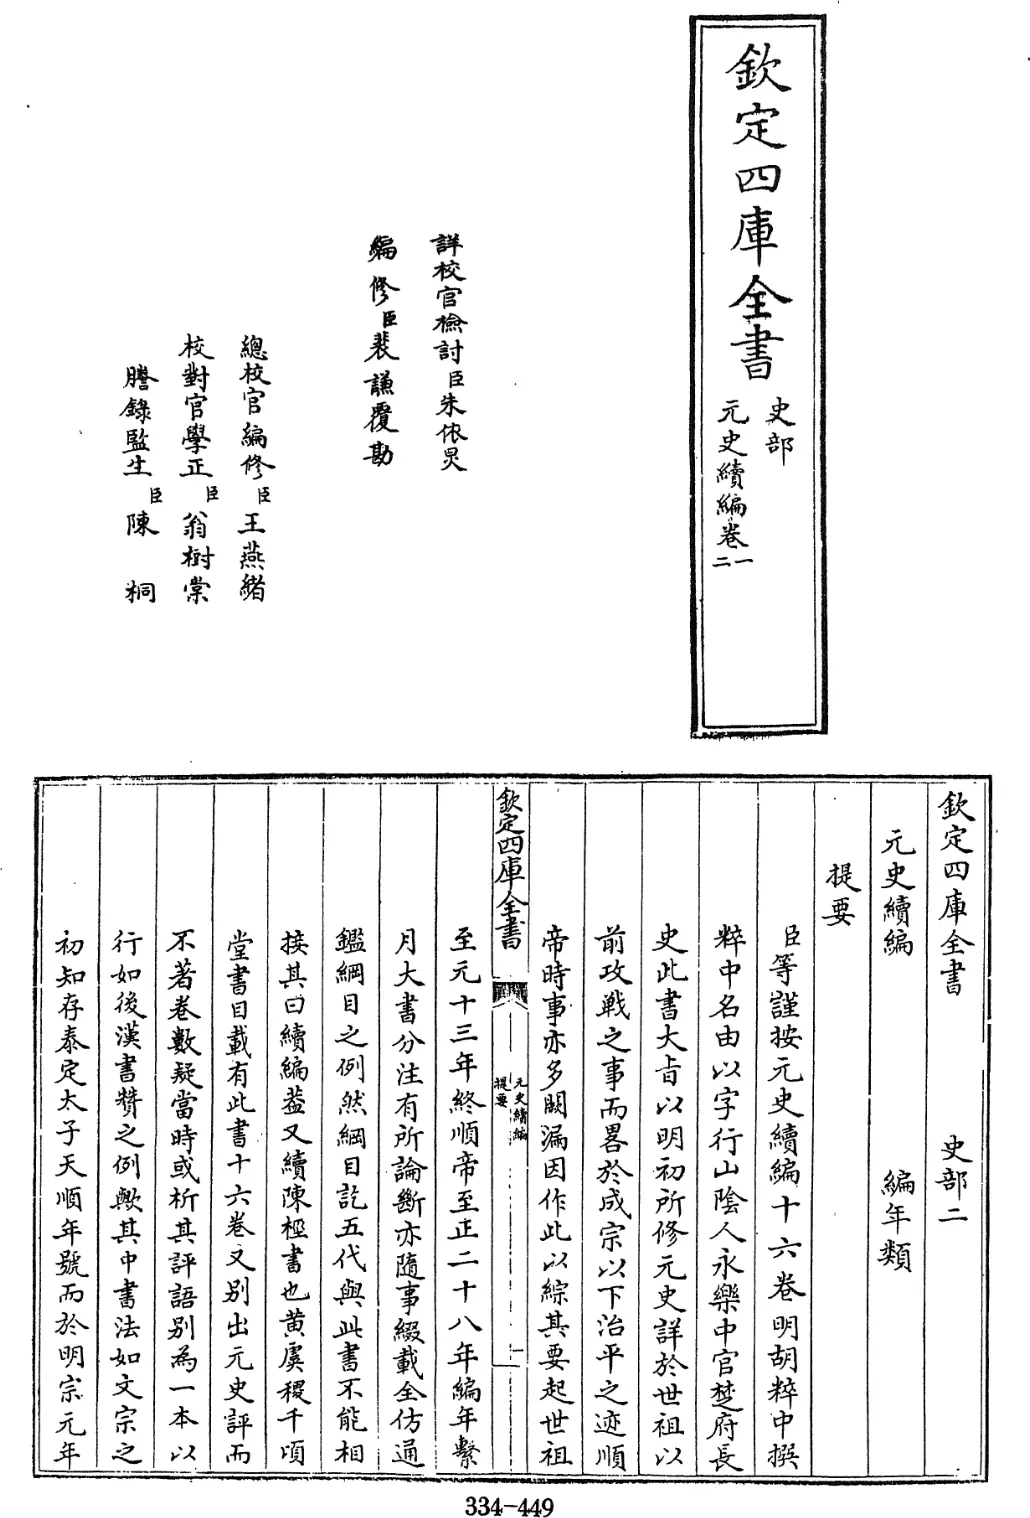 欽定四庫全書
史部
元史續編卷一二
詳校官檢討臣朱依炅
編修臣裴謙覆勘
總校官編修臣王燕緒
校對官學正臣翁樹棠
謄錄監生臣陳桐
欽定四庫全書 史部二
元史續編 編年類
提要
臣等謹按元史續編十六卷明胡粹中撰
粹中名由以字行山陰人永樂中官楚府長
史此書大旨以明初所修元史詳於世祖以
前攻戰之事而畧於成宗以下治平之迹順
帝時事亦多闕漏因作此以綜其要起世祖
欽定四庫全書
元史續編
提要
一
至元十三年終順帝至正二十八年編年繫
月大書分注有所論斷亦隨事綴載全仿通
鑑綱目之例然綱目訖五代與此書不能相
接其曰續編葢又續陳桱書也黃虞稷千頃
堂書目載有此書十六卷又別出元史評而
不著卷數疑當時或析其評語別為一本以
行如後漢書贊之例歟其中書法如文宗之
初知存泰定太子天順年號而於明宗元年
334-449